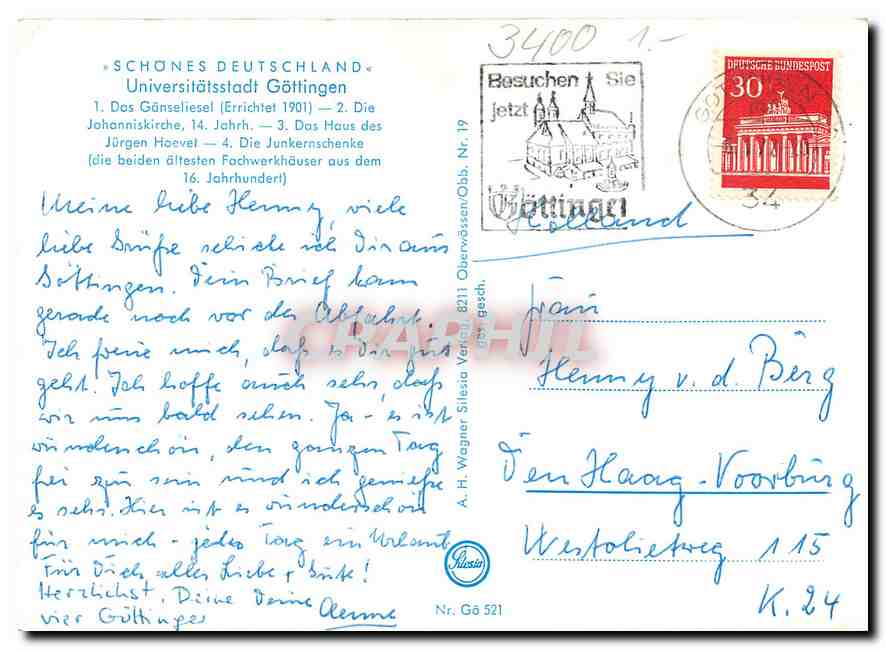 »SCHÖNES DEUTSCHLAND«
Universitätsstadt Göttingen
1. Das Gänseliesel (Errichtet 1901) — 2. Die
Johanniskirche, 14. Jahrh. — 3. Das Haus des
Jürgen Hoevet — 4. Die Junkernschenke
(die beiden ältesten Fachwerkhäuser aus dem
16. Jahrhundert)
Meine liebe Henny, viele
liebe Grüße schicke ich Dir aus
Göttingen. Dein Brief kam
gerade noch vor der Abfahrt.
Ich freue mich, daß es Dir gut
geht. Ich hoffe auch sehr, daß
wir uns bald sehen. Ja - es ist
wunderschön, den ganzen Tag
frei zu sein und ich genieße
es sehr. Hier ist es wunderschön
für mich - jeder Tag ein Urlaub
Für Dich alles Liebe + Gute!
Herzlichst, Deine Deine
vier Göttinger Aenne
A. H. Wagner Silesia Verlag, 8211 Oberwössen/Obb. Nr. 19
ges. gesch.
Silesia
Nr. Gö 521
3400 1.-
Besuchen Sie
jetzt
Göttingen
DEUTSCHE BUNDESPOST
30
34
Holland
Frau
Henny v. d. Berg
Den Haag-Voorburg
Westolietweg 115
K. 24
CPAPHIL